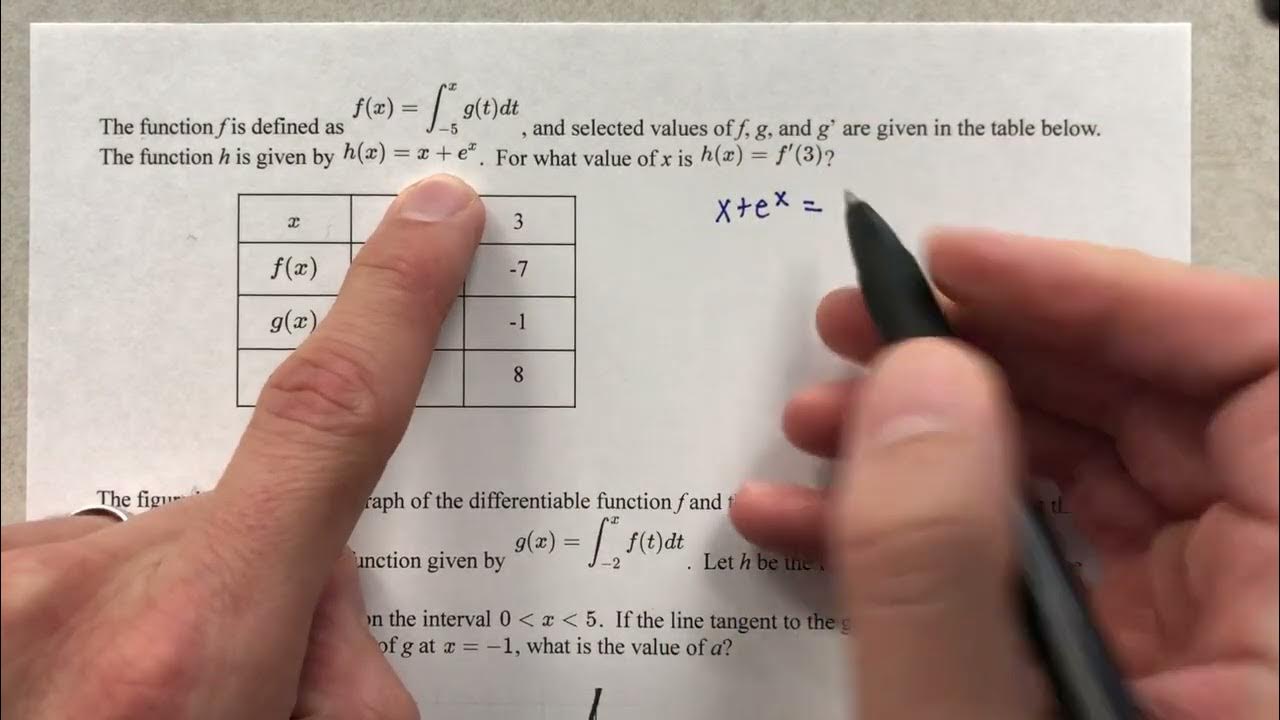 The function f is defined as f(x) = ∫_{-5}^{x} g(t)dt , and selected values of f, g, and g' are given in the table below.
The function h is given by h(x) = x + e^x. For what value of x is h(x) = f'(3)?
x + e^x =
x 3
f(x) -7
g(x) -1
8
The graph of the differentiable function f and
function given by g(x) = ∫_{-2}^{x} f(t)dt . Let h be the
on the interval 0 < x < 5. If the line tangent to the
of g at x = −1, what is the value of a?